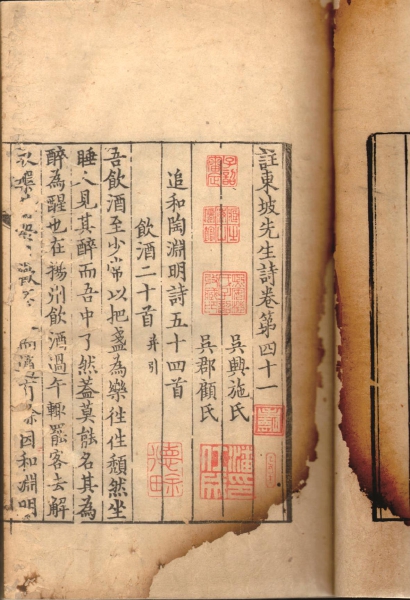 註東坡先生詩卷第四十一
吳興施氏
吳郡顧氏
追和陶淵明詩五十四首
飲酒二十首 并引
吾飲酒至少常以把盞為樂往往頹然坐
睡人見其醉而吾中了然蓋莫能名其為
醉為醒也在揚州飲酒過午輒罷客去解
而適有餘因和淵明